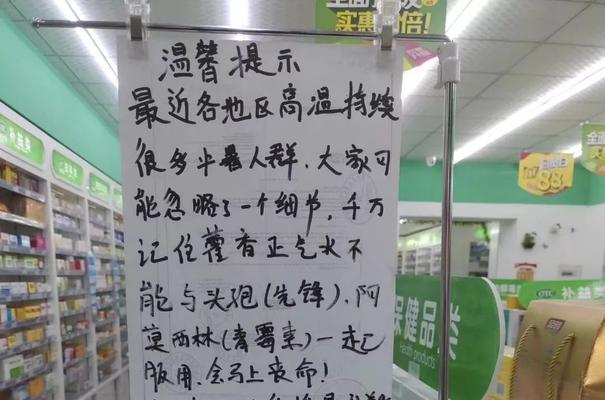 温馨提示
最近各地区高温持续
很多中暑人群,大家可
能忽略了一个细节,千万
记住藿香正气水不
能与头孢(先锋)、阿
莫西林(青霉素)一起
服用,会马上丧命!
实惠 倍!
88
补益类
保健品类
Health products
OTC 补益类